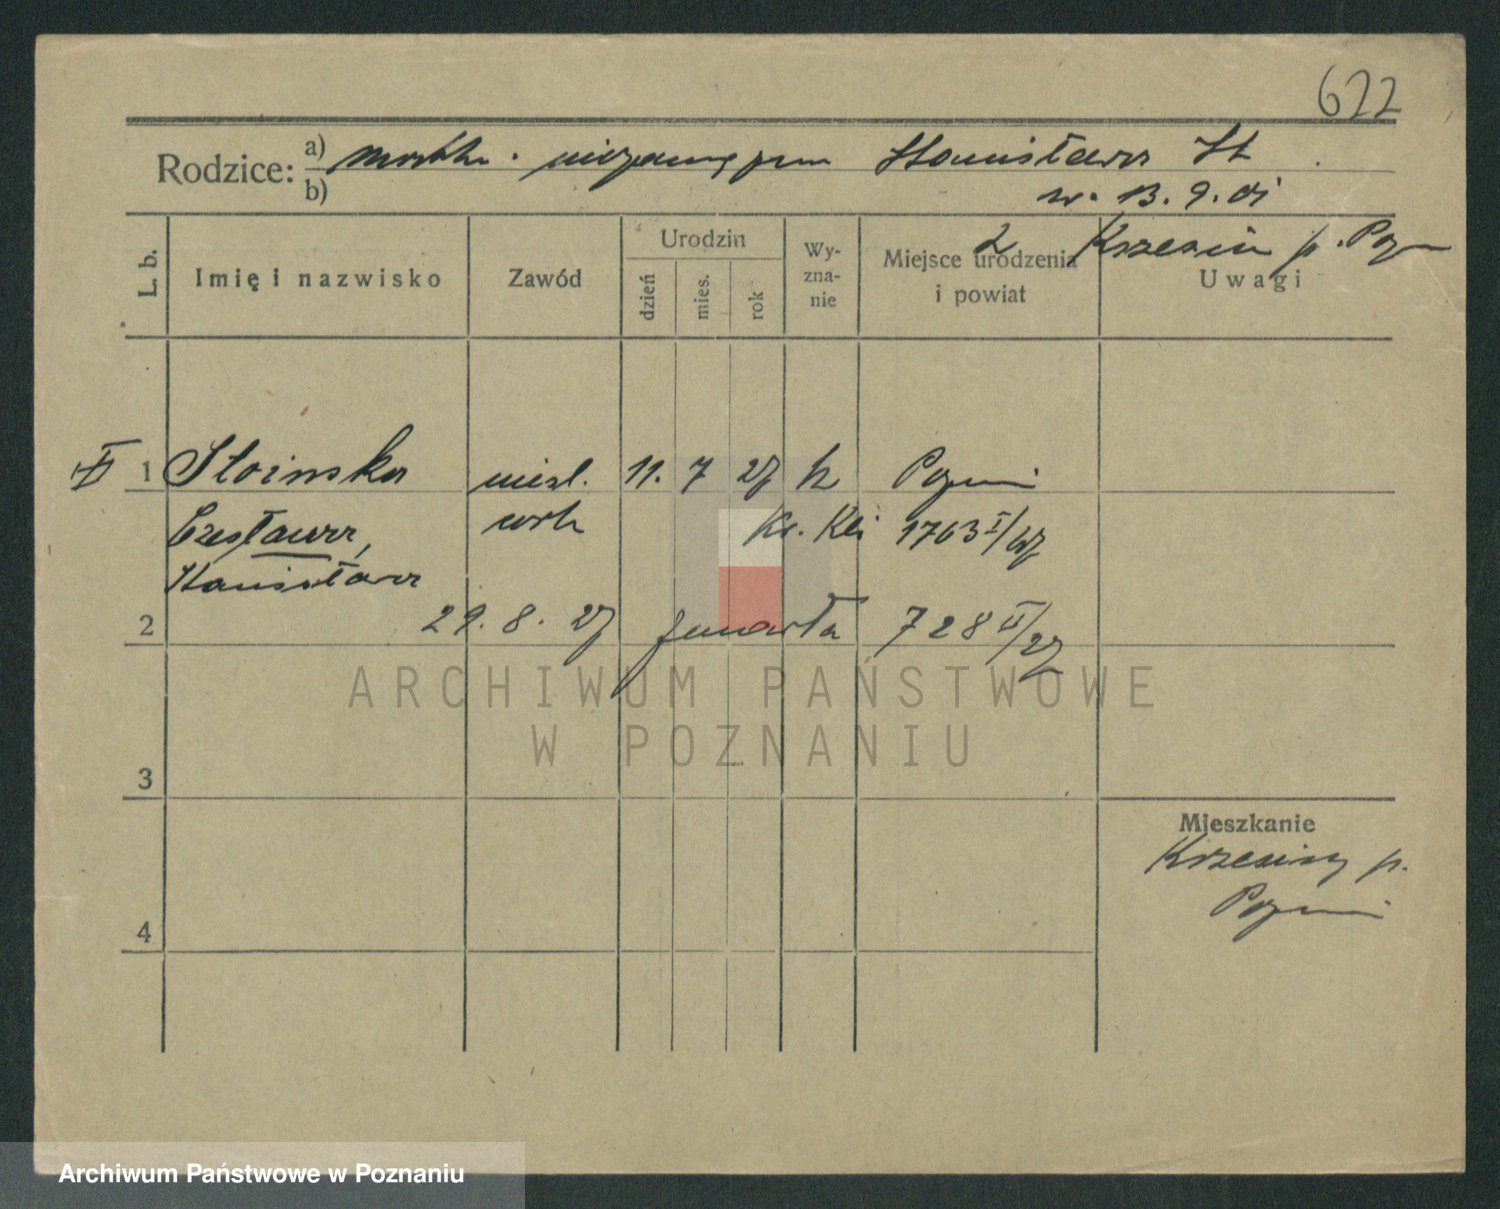 622
Rodzice: a) matka . niezamężna Stanisława St
b) ur. 13. 9. 01
z Krzesin p. Pozn
L. b. Imię i nazwisko Zawód Urodzin dzień mies. rok Wy-zna-nie Miejsce urodzenia i powiat Uwagi
II 1 Stoinska nieśl. 11. 7 27 k Poznań
Czesława, Kr. Kli 1763 I/27
Stanisława
2 29. 8. 27 zmarła 728 II/27
3
Mieszkanie
Krzesiny p.
Poznań
4
ARCHIWUM PAŃSTWOWE
W POZNANIU
Archiwum Państwowe w Poznaniu